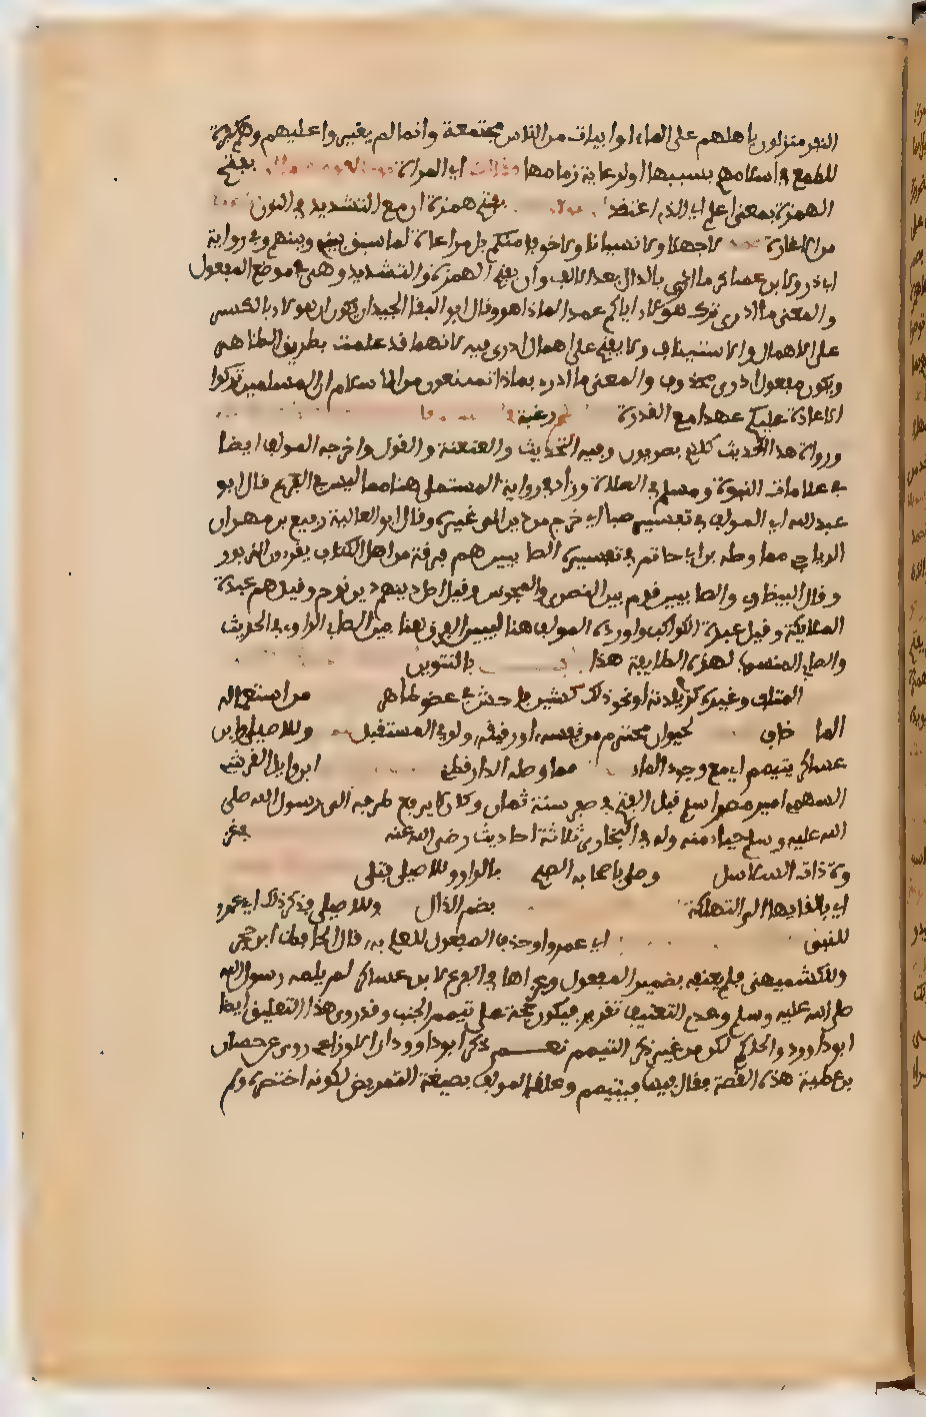 النفر ينزلون باهلهم على الماء او ابيات من الناس مجتمعة وانما لم يغيروا عليهم وهم كفرة
للطمع في اسلامهم بسببها او لرعاية زمامها فقالت اي المراة بفتح
الهمزة بمعنى اعلم اي الذي اعتقد بفتح همزة ان مع التشديد في النون
من الاغارة لا جهلا ولا نسيانا ولا خوفا منكم بل مراعاة لما سبق بيني وبينهم وفي رواية
ابي ذر ولابن عساكر ما ادري بالدال بعد الالف وان بفتح الهمزة والتشديد وهي في موضع المفعول
والمعنى ما ادري ترك هولاء اياكم عمدا لماذا هو وقال ابو البقا الجيد ان يكون ان هولاء بالكسر
على الاهمال والاستيناف ولا يفتح على اعمال ادري فيه لانها قد علمت بطريق الظاهر
ويكون مفعول ادري محذوف والمعنى ما ادري بماذا تمتنعون من الاسلام ان المسلمين تركوا
الاغارة عليكم عمدا مع القدرة رغبة
ورواة هذا الحديث كلهم بصريون وفيه التحديث والعنعنة والقول واخرجه المولف ايضا
في علامات النبوة ومسلم في الصلاة وزاد في رواية المستملي هنا مما ليس في الفرع قال ابو
عبد الله اي المولف في تفسير صبا اي خرج من دين الى غيره وقال ابو العالية رفيع بن مهران
الرياحي مما وصله ابن ابي حاتم في تفسيره الصابيين هم فرقة من اهل الكتاب يقرون الزبور
وقال البيضاوي والصابيين قوم بين النصرى والمجوس وقيل اصل دينهم دين نوح وقيل هم عبدة
الملايكة وقيل عبدة الكواكب واورده المولف هنا ليبين الفرق بين الصابي الوارد في الحديث
والصابي المنسوب لهذه الطايفة هذا بالتنوين
المتلف وغيره كزيادته او نحو ذلك كشين فاحش في عضو ظاهر من استعماله
الماء خاف لحيوان محترم من نفسه او رفيقه ولو في المستقبل وللاصيلي وابن
عساكر يتيمم اي مع وجود الماء مما وصله الدارقطني ابن وايل القرشي
السهمي امير مصر اسلم قبل الفتح في صفر سنة ثمان وكان لا يرفع طرفه الى رسول الله صلى
الله عليه وسلم حياء منه وله في البخاري ثلاثة احاديث رضي الله عنه في غز
وة ذات السلاسل وصلى باصحابه الصبح بالواو وللاصيلي فتلى
اي بالقايها الى التهلكة بضم الذال وللاصيلي فذكر ذلك اي عمرو
للنبي اي عمروا وحذف المفعول للعلم به قال الحافظ ابن حجر
وللكشميهني فلم يعنفه بضمير المفعول وعزاها في الفرع لابن عساكر لم يلمه رسول الله
صلى الله عليه وسلم وعدم التعنيف تقرير فيكون حجة على تيمم الجنب وقد روى هذا التعليق ايضا
ابو داوود والحاكم لكن من غير ذكر التيمم نعم ذكر ابو داوود ان الاوزاعي روى عن حسان
بن عطية هذه القصة فقال فيها فتيمم وعلقه المولف بصيغة التمريض لكونه اختصره ولم